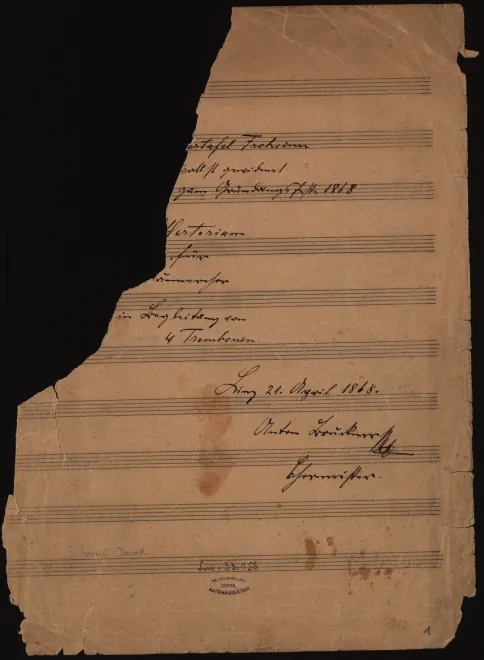 ertafel Frohsinn
vollst gewidmet
zum Gründungsfeste 1868
ffertorium
für
ännerchor
in Begleitung von
4 Trombonen.
Linz 21. April 1868.
Anton Bruckner
Chormeister.
Inveni David
1